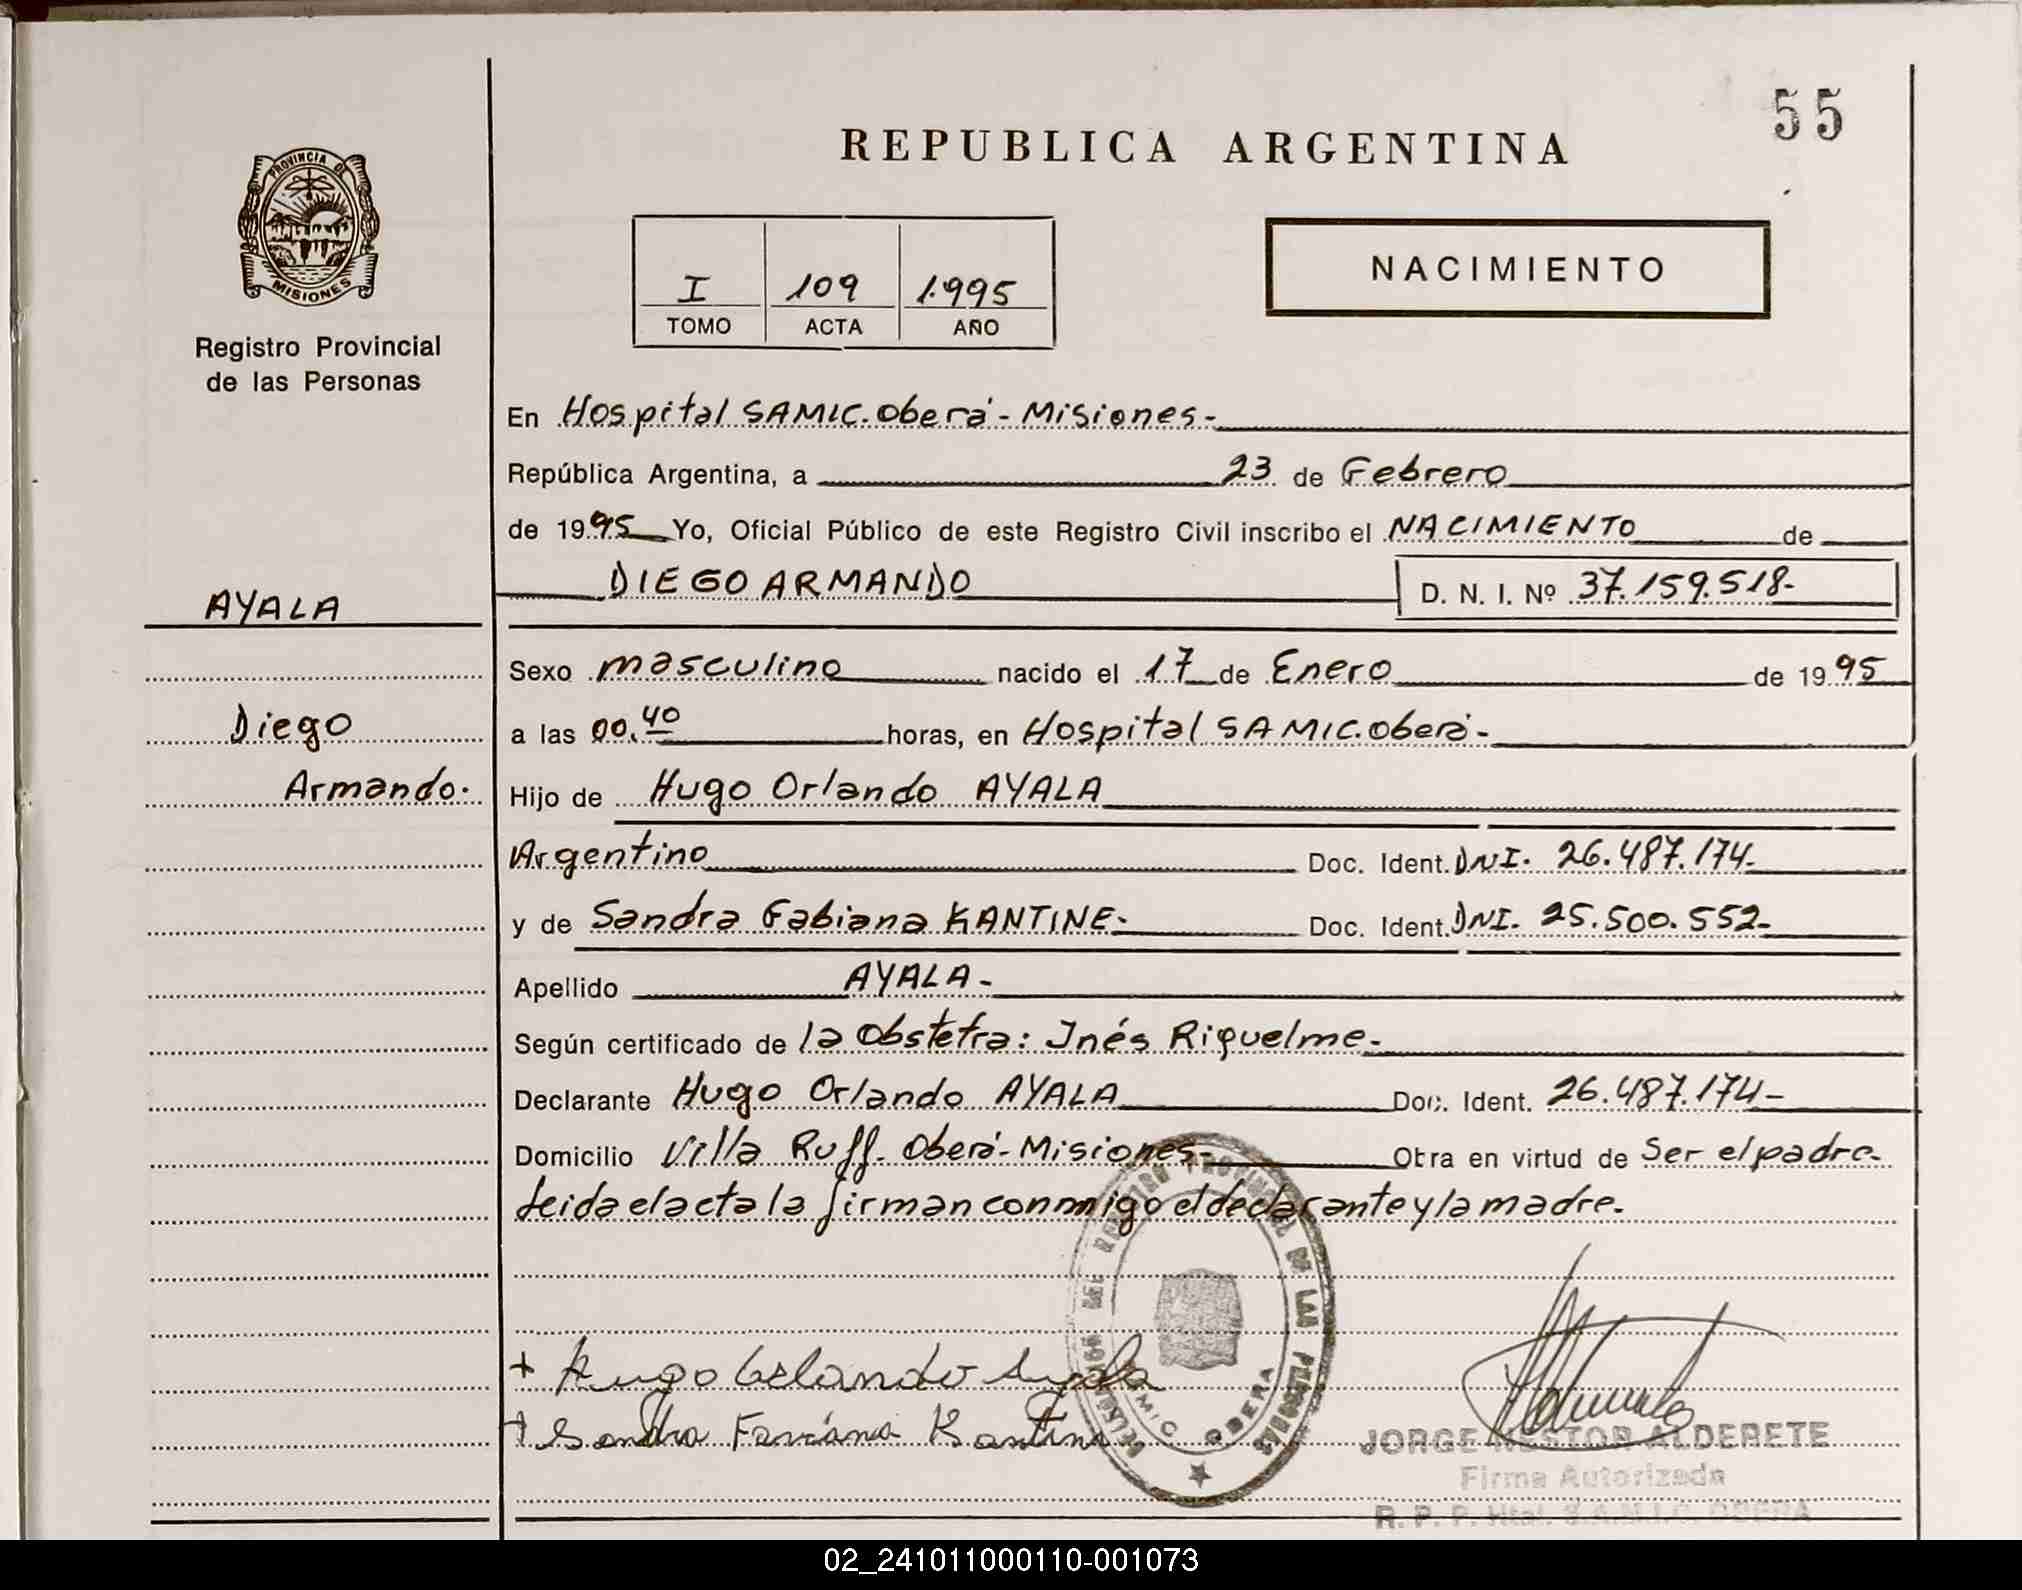 55
REPUBLICA ARGENTINA
PROVINCIA DE
MISIONES
Registro Provincial
de las Personas
I 109 1.995
TOMO ACTA AÑO
NACIMIENTO
En Hospital SAMIC. Oberá - Misiones -
República Argentina, a 23 de Febrero
de 1995 Yo, Oficial Público de este Registro Civil inscribo el NACIMIENTO de
DIEGO ARMANDO D. N. I. Nº 37.159.518-
AYALA
Sexo masculino nacido el 17 de Enero de 1995
Diego
a las 00.40 horas, en Hospital SAMIC. Oberá -
Armando.
Hijo de Hugo Orlando AYALA
Argentino Doc. Ident. DNI. 26.487.174-
y de Sandra Fabiana KANTINE- Doc. Ident. DNI. 25.500.552-
Apellido AYALA -
Según certificado de la Obstetra: Inés Riquelme -
Declarante Hugo Orlando AYALA Doc. Ident. 26.487.174 -
Domicilio Villa Ruff. Oberá - Misiones - Obra en virtud de Ser el padre -
Leida el acta la firman conmigo el declarante y la madre.
DELEGACION DEL REGISTRO PROVINCIAL DE LAS PERSONAS
SAMIC OBERA
+ Hugo Orlando Ayala
+ Sandra Faviana Kantine
JORGE NESTOR ALDERETE
Firma Autorizada
R. P. P. Htal. S.A.M.I.C. OBERA
02_241011000110-001073